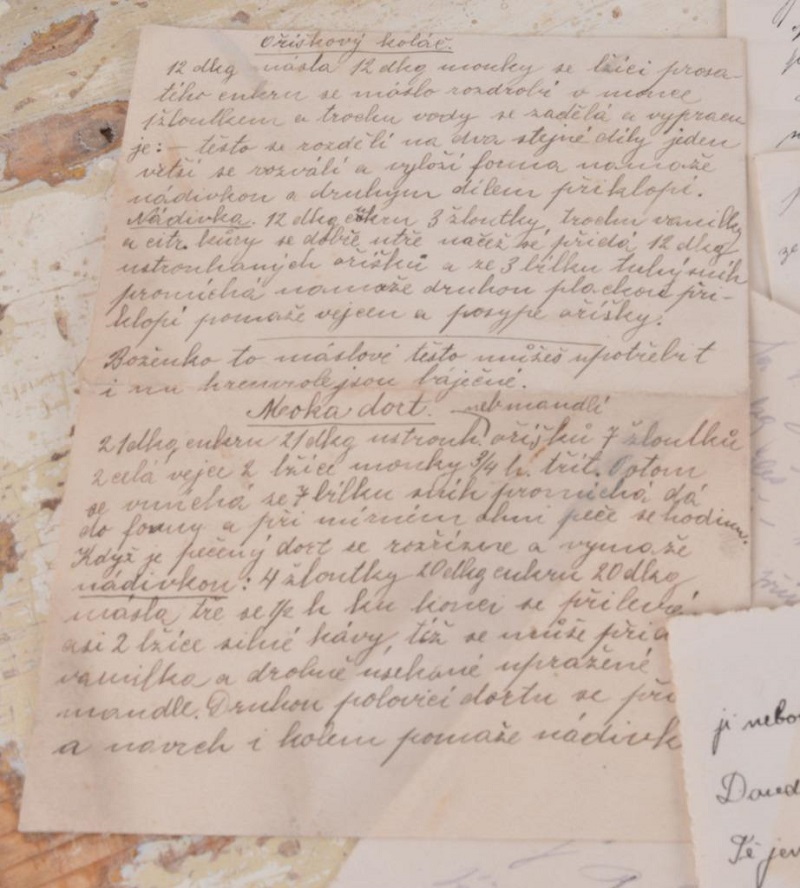 Oříškový koláč.
12 dkg másla 12 dkg mouky se lžící prosa-
tého cukru se máslo rozdrobí v mouce
1 žloutkem a trochu vody se zadělá a vypracu
je: - těsto se rozdělí na dva stejné díly jeden
větší se rozválí a vyloží forma namaže
nádivkou a druhým dílem přiklopí.
Nádivka. 12 dkg cukru 3 žloutky, trochu vanilky
a citr. kůry se dobře utře načež se přidá 12 dkg
ustrouhaných oříšků a ze 3 bílku tuhý sníh
promíchá namaže druhou plackou při-
klopí pomaže vejcem a posype oříšky.
Boženko to máslové těsto můžeš upotřebit
i na kremrole jsou báječné.
Moka dort. neb mandlí
21 dkg cukru 21 dkg ustrouh. oříšků 7 žloutků
2 celá vejce 2 lžíce mouky 3/4 h. třít. Potom
se vmíchá ze 7 bílku sníh promíchá dá
do formy a při mírném ohni peče se hodinu.
Když je pečený dort se rozřízne a vymaže
nádivkou: 4 žloutky 20 dkg cukru 20 dkg
másla tře se 1/2 h ku konci se přilévá
asi 2 lžíce silné kávy, též se může
vanilka a drobně usekané upražené
mandle. Druhou polovicí dortu se
a navrch i kolem pomaže
ji
Té